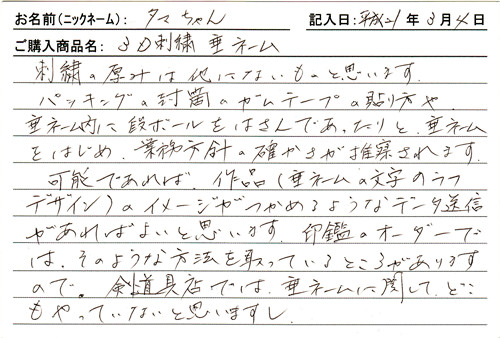 お名前(ニックネーム): タマちゃん 記入日: 平成21年3月4日
ご購入商品名: 3D刺繍 垂ネーム
刺繍の厚みは他にないものと思います。
パッキングの封筒のガムテープの貼り方や、
垂ネーム内に段ボールをはさんであったりと、垂ネーム
をはじめ 業務方針の確かさが推察されます。
可能であれば、作品(垂ネームの文字のラフ
デザイン)のイメージがつかめるようなデータ送信
があればよいと思います。印鑑のオーダーで
は、そのような方法を取っているところがあります
ので。剣道具店では、垂ネームに関して、どこ
もやっていないと思いますし